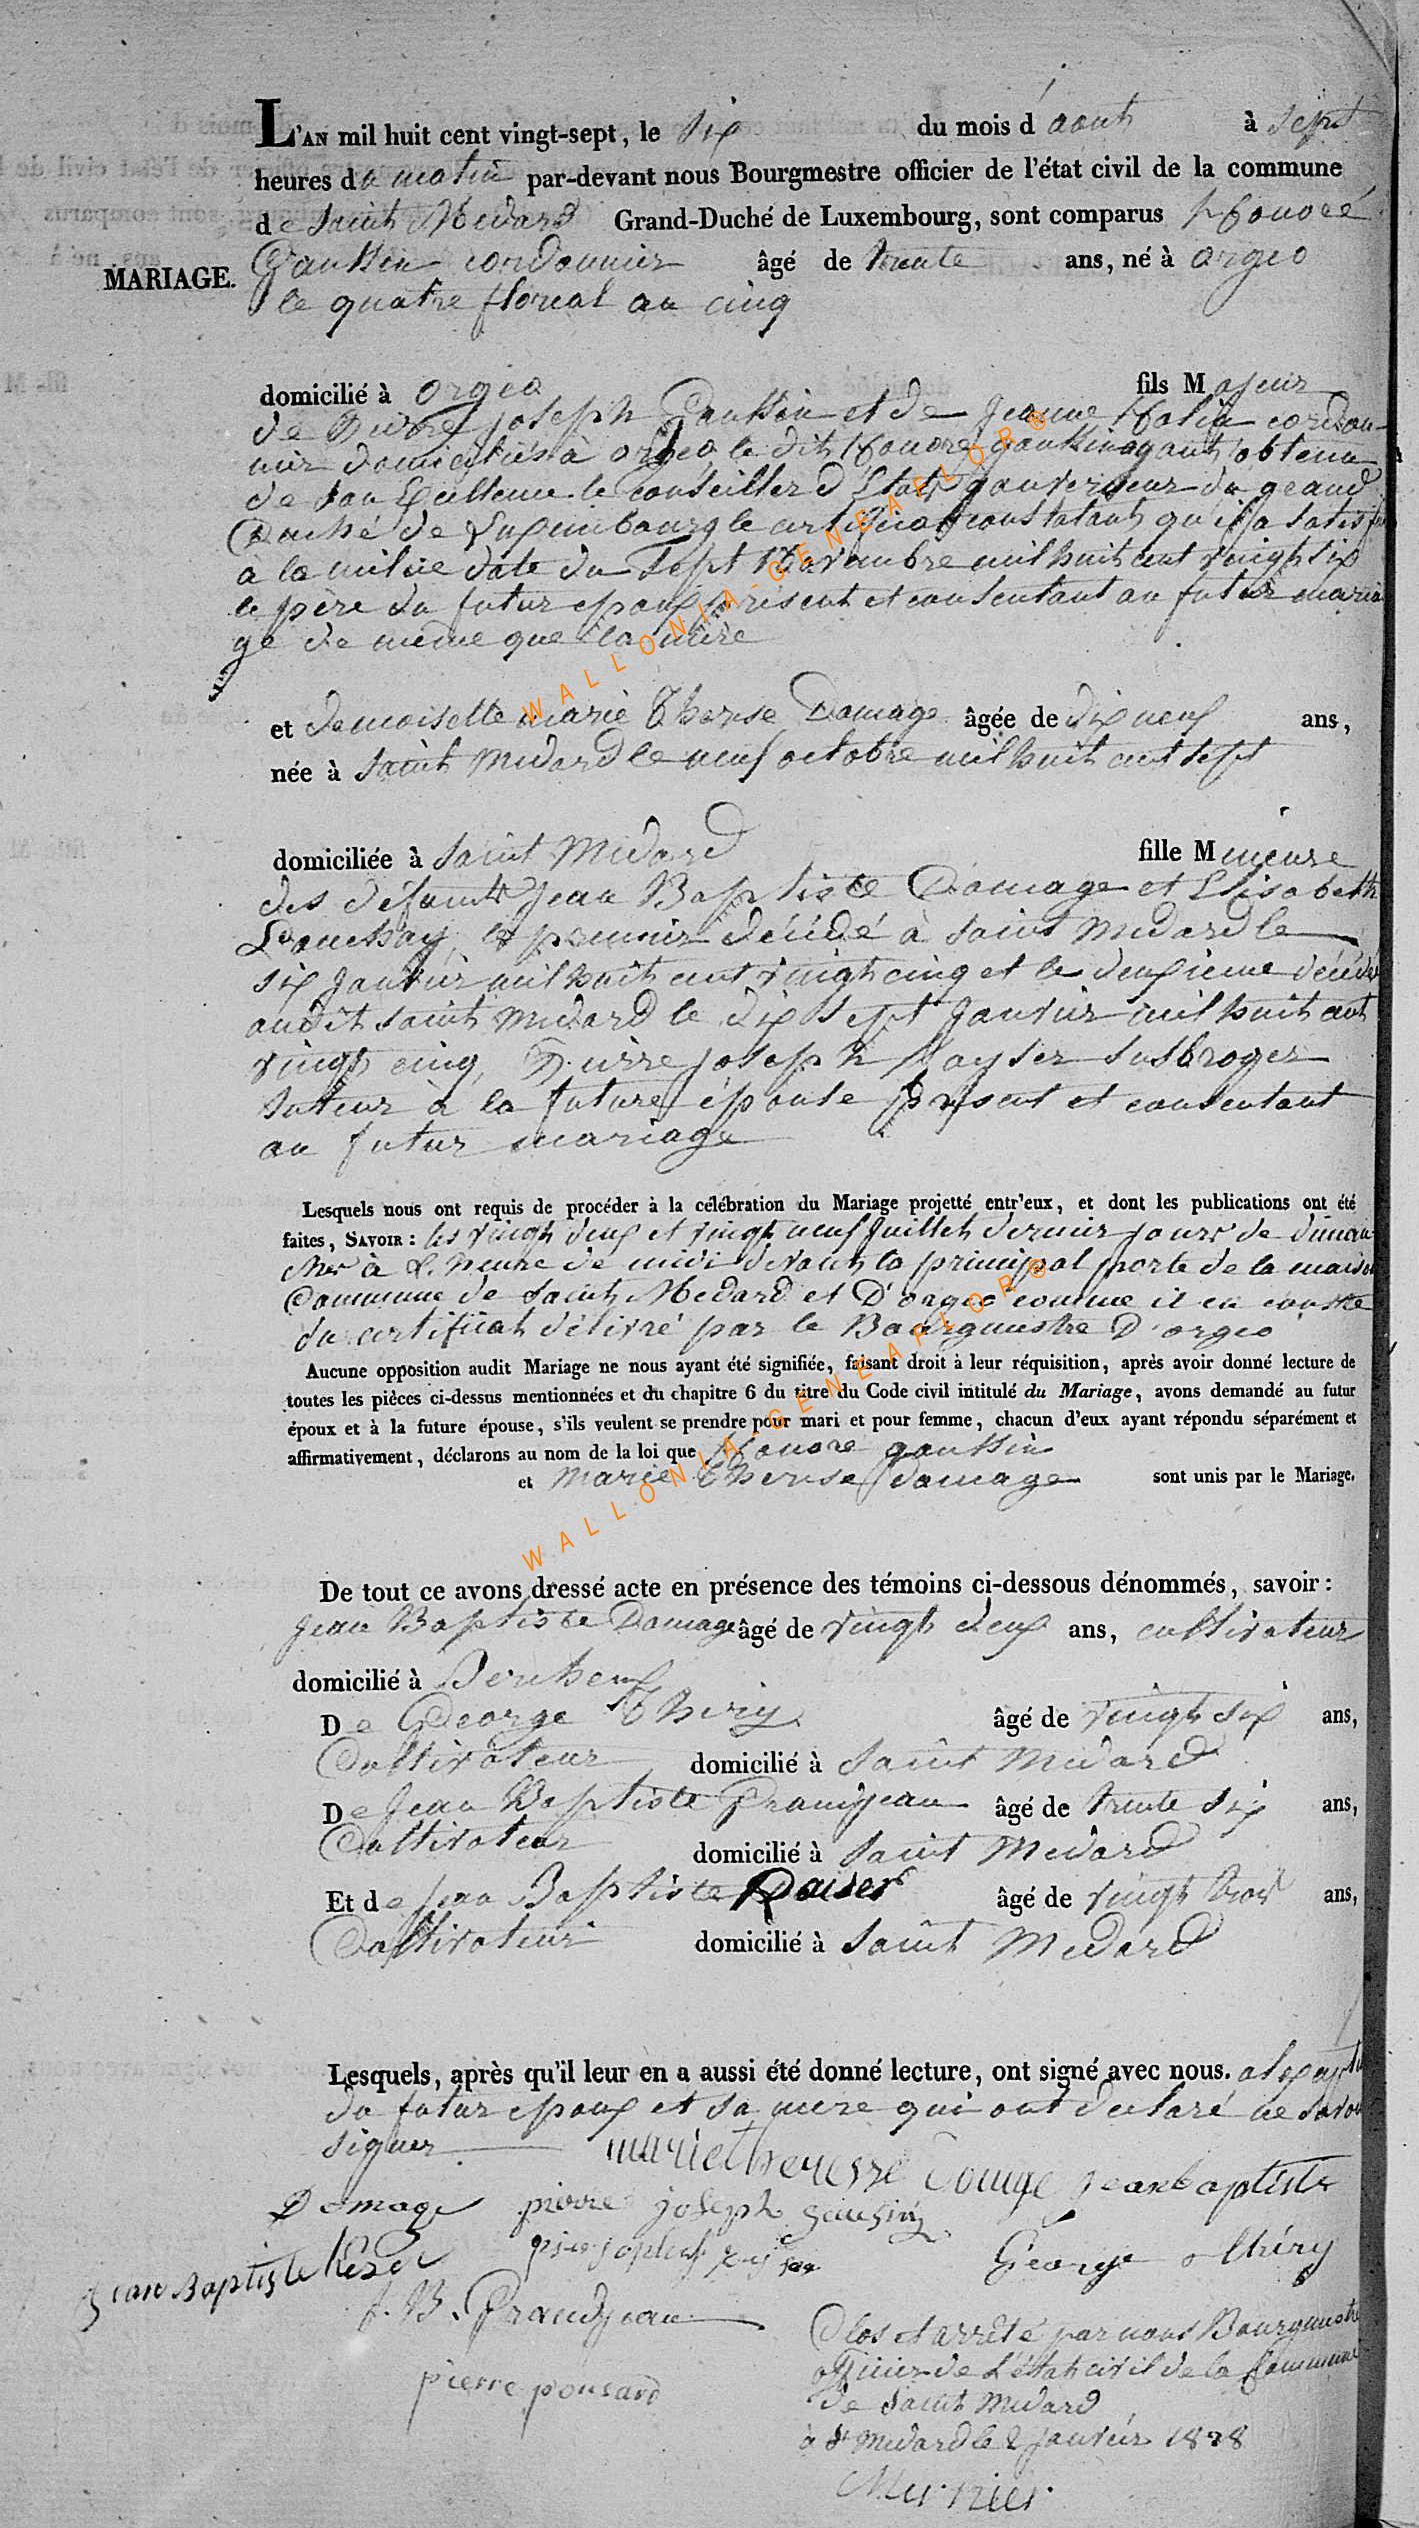 L'AN mil huit cent vingt-sept, le six du mois d'aout à sept
heures du matin par-devant nous Bourgmestre officier de l'état civil de la commune
de Saint Medard Grand-Duché de Luxembourg, sont comparus Honoré
MARIAGE. Gaussin cordonnier âgé de trente ans, né à orgeo
le quatre floreal an cinq
domicilié à orgeo fils Majeur
de Pierre joseph Gaussin et de Jeanne cordon-
nier domiciliés à orgeo, le dit Honoré gaussin ayant obtenu
de son Excellence le conseiller d'Etat gouverneur du grand
Duché de Luxembourg le certificat constatant qu'il a satisfait
à la milice date du sept Novembre mil huit cent vingt six
le père du futur epoux présent et consentant au futur maria
ge de même que la mère
et demoiselle marie Therese Damage âgée de dix neuf ans,
née à Saint Medard le neuf octobre mil huit cent sept
domiciliée à Saint Medard fille Mineure
des défunts Jean Baptiste Damage et Elisabeth
le premier décédé à Saint Medard le
six Janvier mil huit cent vingt cinq et la deuxieme décédée
audit Saint Medard le dix sept Janvier mil huit cent
vingt cinq, Pierre joseph subroger
tuteur à la future épouse présent et consentant
au futur mariage
Lesquels nous ont requis de procéder à la célébration du Mariage projetté entr'eux, et dont les publications ont été
faites, SAVOIR : les vingt deux et vingt neuf Juillet dernier jours de diman
ches à l'heure de midi devant la principal porte de la maison
Commune de Saint Medard et D'orgeo comme il en conste
du certificat délivré par le Bourgmestre D'orgeo
Aucune opposition audit Mariage ne nous ayant été signifiée, faisant droit à leur réquisition, après avoir donné lecture de
toutes les pièces ci-dessus mentionnées et du chapitre 6 du titre du Code civil intitulé du Mariage, avons demandé au futur
époux et à la future épouse, s'ils veulent se prendre pour mari et pour femme, chacun d'eux ayant répondu séparément et
affirmativement, déclarons au nom de la loi que Honoré gaussin
et Marie Therese Damage sont unis par le Mariage.
De tout ce avons dressé acte en présence des témoins ci-dessous dénommés, savoir :
Jean Baptiste Damage âgé de vingt deux ans, cultivateur
domicilié à Bercheux
De George Thiry âgé de vingt six ans,
Cultivateur domicilié à Saint Medard
De Jean Baptiste Grandjean âgé de trente six ans,
Cultivateur domicilié à Saint Medard
Et de Jean Baptiste Kaiser âgé de vingt trois ans,
Cultivateur domicilié à Saint Medard
Lesquels, après qu'il leur en a aussi été donné lecture, ont signé avec nous. a l'exception
du futur epoux et sa mere qui ont declaré ne savoir
signer
marie therese Domage jean baptiste
Domage pierre joseph gaussin
George Thiry
Jean Baptiste
J. B. Grandjean
pierre ponsard
Clos et arrêté par nous Bourgmestre
officier de l'état civil de la Commune
de Saint Medard
à St Medard le 2 janvier 1828
WALLONIA-GENEAFLOR®
WALLONIA-GENEAFLOR®